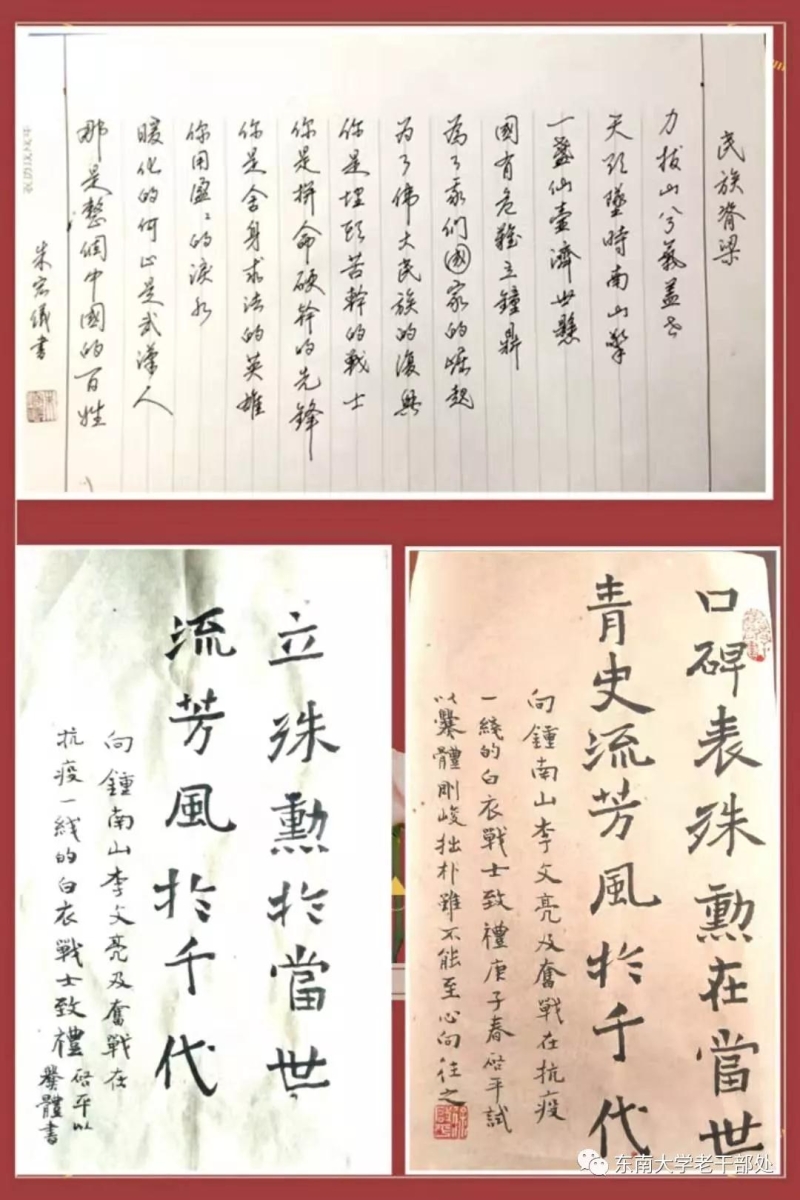 民族脊梁
力拔山兮氣蓋世
天頃墜時南山擎
一盞仙壺濟世懸
國有危難立鐘鼎
為了我們國家的崛起
為了偉大民族的復興
你是埋頭苦幹的戰士
你是拼命硬幹的先鋒
你是舍身求法的英雄
你用盈盈的淚水
暖化的何止是武漢人
那是整個中國的百姓
朱宏儀書
立殊勳於當世
流芳風於千代
向鍾南山李文亮及奮戰在
抗疫一綫的白衣戰士致禮 啓平以
爨體書
口碑表殊勳在當世
青史流芳風於千代
向鍾南山李文亮及奮戰在抗疫
一綫的白衣戰士致禮庚子春啓平試
以爨體剛峻拙朴雖不能至心向往之
东南大学老干部处